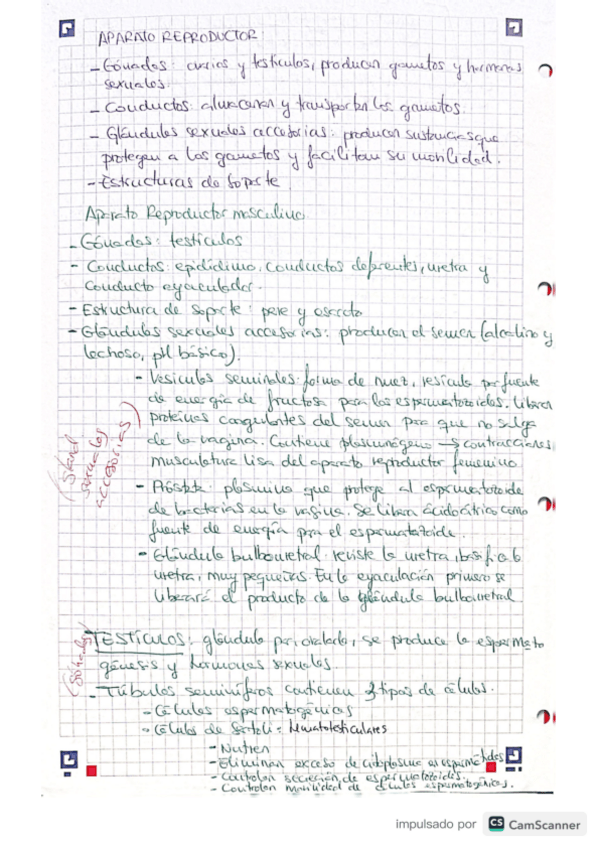 APARATO REPRODUCTOR:
- Gónadas: ovarios y testículos, producen gametos y hormonas
sexuales.
- Conductos: almacenan y transportan los gametos.
- Glándulas sexuales accesorias: producen sustancias que
protegen a los gametos y facilitan su movilidad.
- Estructuras de soporte
Aparato Reproductor masculino
- Gónadas: testículos
- Conductos: epidídimo, conductos deferentes, uretra y
conducto eyaculador.
- Estructura de soporte: pene y escroto
- Glándulas sexuales accesorias: producen el semen (alcalino y
lechoso, pH básico).
- Vesículas seminales: forma de nuez, vesícula por fuente
de energía de fructosa para los espermatozoides. Liberan
proteínas coagulantes del semen para que no salga
de la vagina. Contiene plasminógeno → contracciones
musculatura lisa del aparato reproductor femenino
(
sexuales
accesorias)
- Próstata: plasmina que protege al espermatozoide
de bacterias en la vagina. Se liberan ácido cítrico como
fuente de energía para el espermatozoide.
- Glándula bulbouretral: reviste la uretra, basifica la
uretra, muy pequeñas. En la eyaculación primero se
liberará el producto de la glándula bulbouretral
TESTÍCULOS: glándula par, ovalada, se produce la espermato
génesis y hormonas sexuales.
- Túbulos seminíferos contienen 2 tipos de células.
- Células espermatogénicas
- Células de Sertoli: hematotesticulares
- Nutren
- Eliminan exceso de citoplasma en espermátidas
- Controlan secreción de espermatozoides.
- Controlan movilidad de células espermatogénicas.
impulsado por CS CamScanner